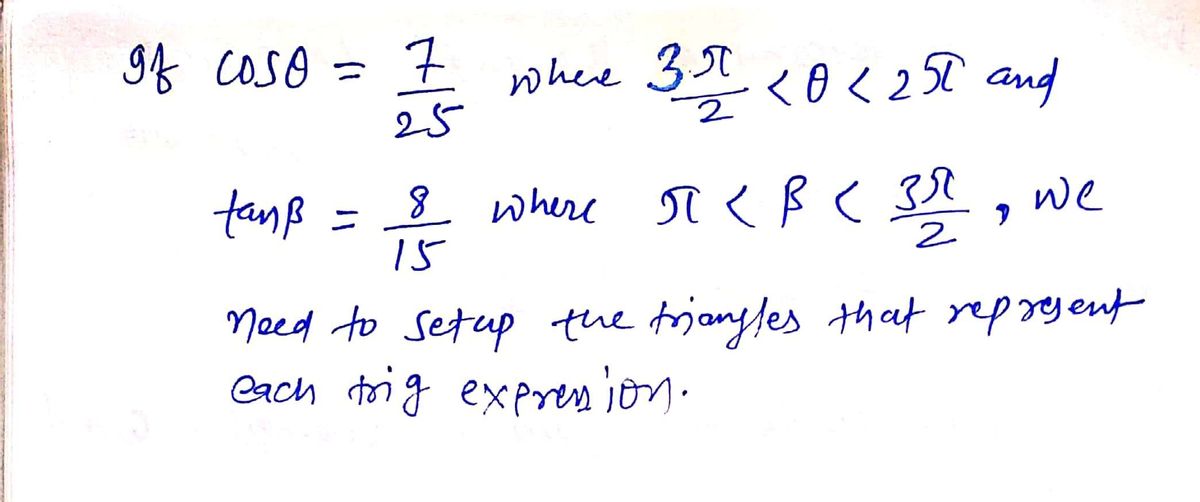 If cosθ = 7/25 where 3π/2 < θ < 2π and
tanβ = 8/15 where π < β < 3π/2, we
need to setup the triangles that represent
each trig expression.